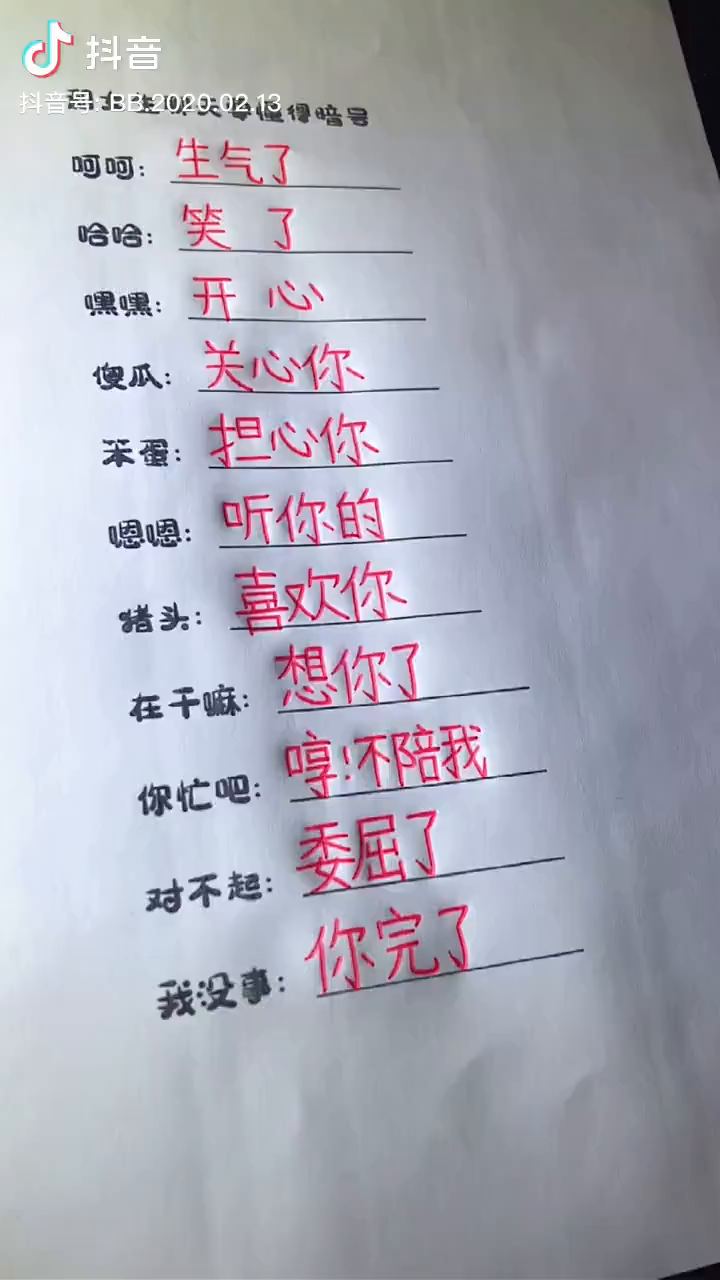 抖音
抖音号: BB.2020.02.13
懂得暗号
呵呵: 生气了
哈哈: 笑 了
嘿嘿: 开 心
傻瓜: 关心你
笨蛋: 担心你
嗯嗯: 听你的
猪头: 喜欢你
在干嘛: 想你了
你忙吧: 哼!不陪我
对不起: 委屈了
我没事: 你完了